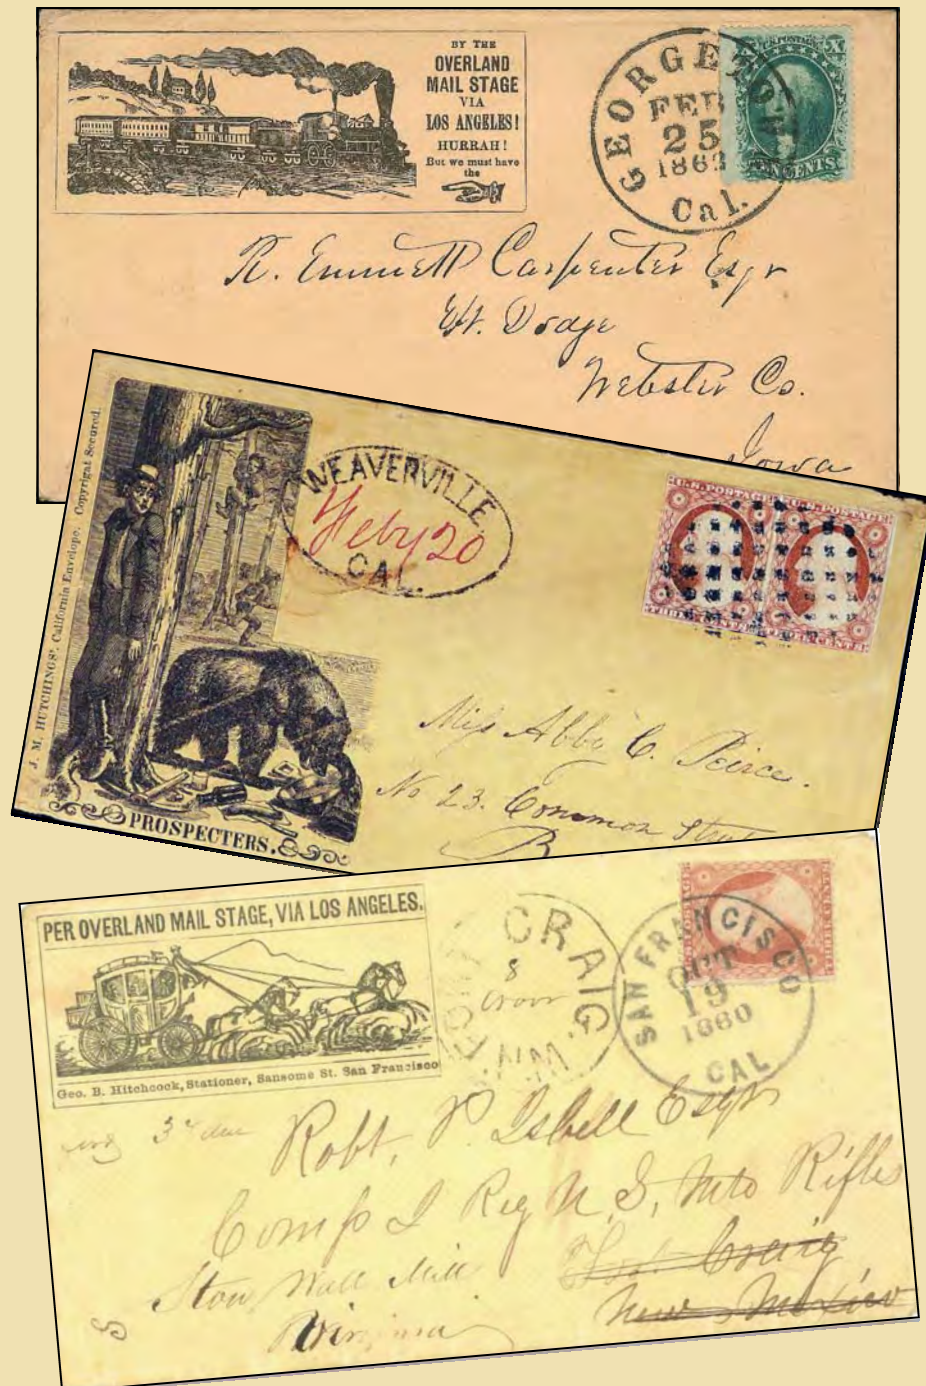 BY THE
OVERLAND
MAIL STAGE
VIA
LOS ANGELES!
HURRAH!
But we must have
the
GEORGETOWN
FEB
25
1862
Cal.
U.S. POSTAGE
X
TEN CENTS
R. Emmett Carpenter Esqr
Ft. Dodge
Webster Co.
Iowa
J. M. HUTCHINGS'. California Envelope. Copyright Secured.
PROSPECTERS.
WEAVERVILLE
Feby 20
CAL.
U.S. POSTAGE
U.S. POSTAGE
THREE CENTS
Miss Abby C. Peirce.
No 23. Common Street
B
PER OVERLAND MAIL STAGE, VIA LOS ANGELES.
Geo. B. Hitchcock, Stationer, Sansome St. San Francisco
FORT CRAIG
8
N.M.
SAN FRANCISCO
OCT
19
1860
CAL
3 due
Robt. P. Isbell Esqr
Comp I Reg U, S, Mtd Rifles
Fort Craig
New Mexico
Wall Mill
Virginia